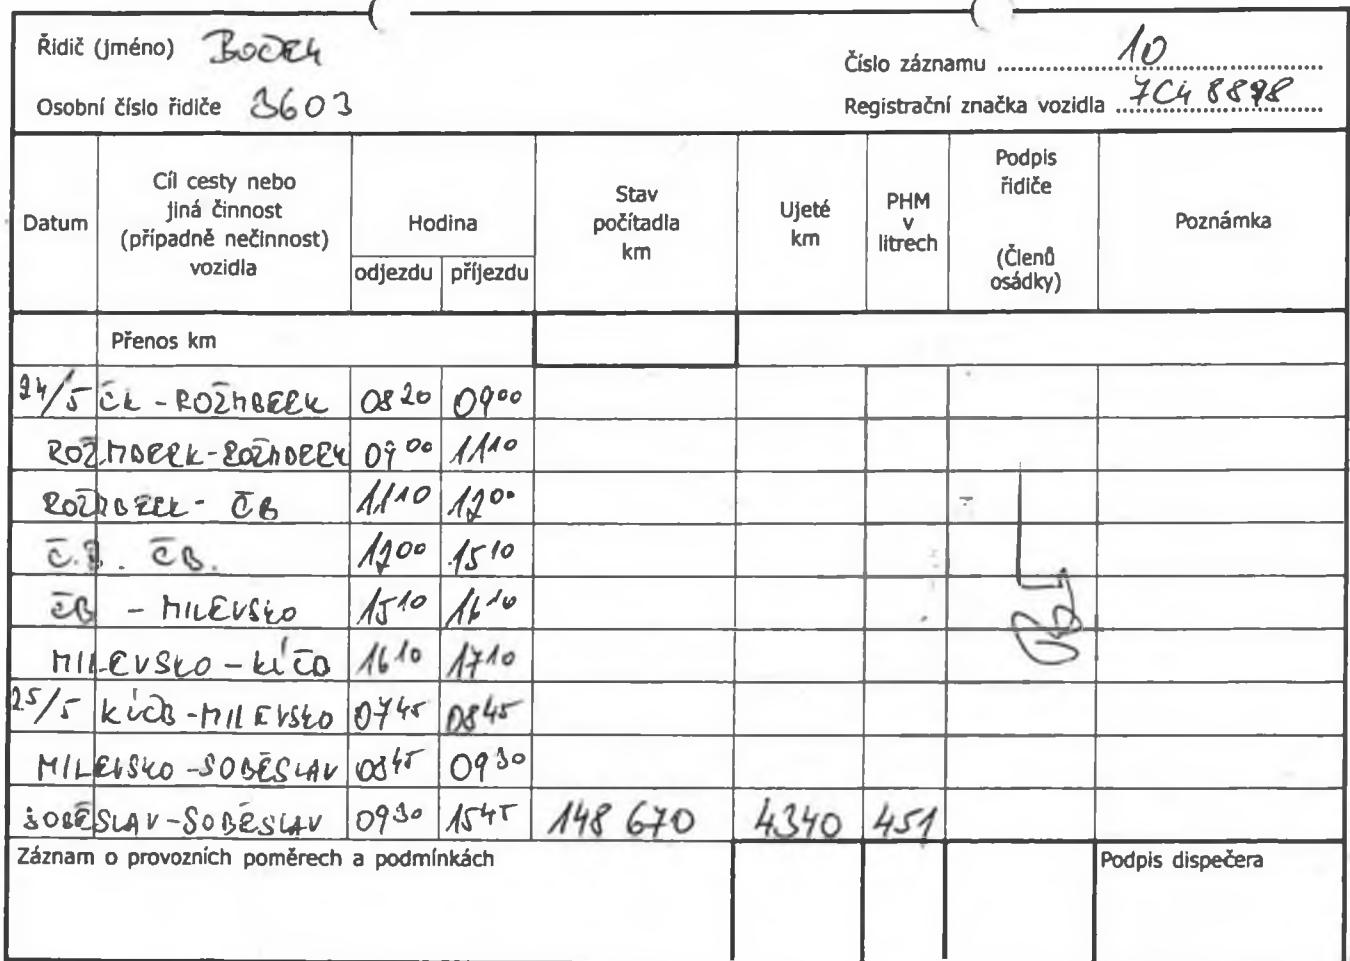 Řidič (jméno) BOČEK
Číslo záznamu 10
Osobní číslo řidiče 3603
Registrační značka vozidla 7C4 8898
Datum
Cíl cesty nebo
jiná činnost
(případně nečinnost)
vozidla
Hodina
odjezdu příjezdu
Stav
počítadla
km
Ujeté
km
PHM
v
litrech
Podpis
řidiče
(Členů
osádky)
Poznámka
Přenos km
24/5 ČK - ROŽMBERK 08 20 09 00
ROŽMBERK - ROŽMBERK 09 00 11 10
ROŽMBERK - ČB 11 10 12 00
Č.B. ČB. 12 00 15 10
ČB - MILEVSKO 15 10 16 10
MILEVSKO - KÍČB 16 10 17 10
25/5 KÍČB - MILEVSKO 07 45 08 45
MILEVSKO - SOBĚSLAV 08 45 09 30
SOBĚSLAV - SOBĚSLAV 09 30 15 45 148 670 4340 451
Záznam o provozních poměrech a podmínkách
Podpis dispečera